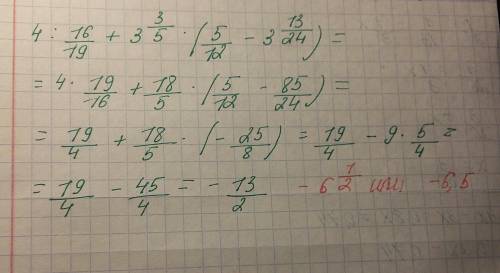 4 : 16/19 + 3 3/5 · (5/12 - 3 13/24) =
= 4 · 19/16 + 18/5 · (5/12 - 85/24) =
= 19/4 + 18/5 · (- 25/8) = 19/4 - 9 · 5/4 =
= 19/4 - 45/4 = - 13/2 - 6 1/2 или -6,5